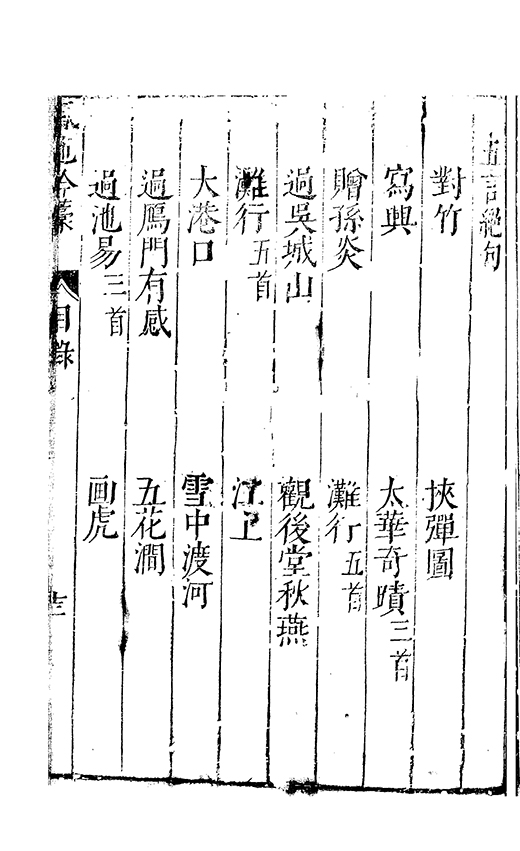 五言絕句
對竹
挾彈圖
寫興
太華奇蹟三首
贈孫炎
灘行五首
過吳城山
觀後堂秋燕
灘行五首
江上
大港口
雪中渡河
過鴈門有感
五花澗
過池易三首
画虎
吟藁
目錄